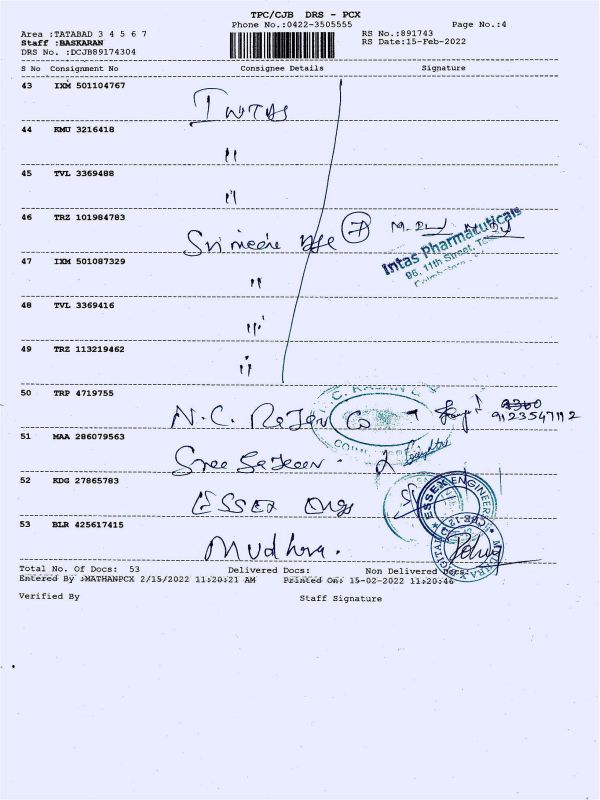 TPC/CJB DRS - PCX
Phone No.:0422-3505555
Page No.:4
Area :TATABAD 3 4 5 6 7
RS No.:891743
Staff :BASKARAN
RS Date:15-Feb-2022
DRS No. :DCJB89174304
S No Consignment No Consignee Details Signature
43 IXM 501104767
INTAS
44 KMU 3216418
"
45 TVL 3369488
"
46 TRZ 101984783
Sri 7
Intas Pharmaceuticals
96, 11th Street,
47 IXM 501087329
"
48 TVL 3369416
"
49 TRZ 113219462
"
50 TRP 4719755
N.C. Rajan Co
9123547192
51 MAA 286079563
Sree
52 KDG 27865783
ESSEX Engg
ESSEX ENGINEER
53 BLR 425617415
Mudhra.
Total No. Of Docs: 53 Delivered Docs: Non Delivered Docs:
Entered By :MATHANPCX 2/15/2022 11:20:21 AM Printed On: 15-02-2022 11:20:46
Verified By Staff Signature